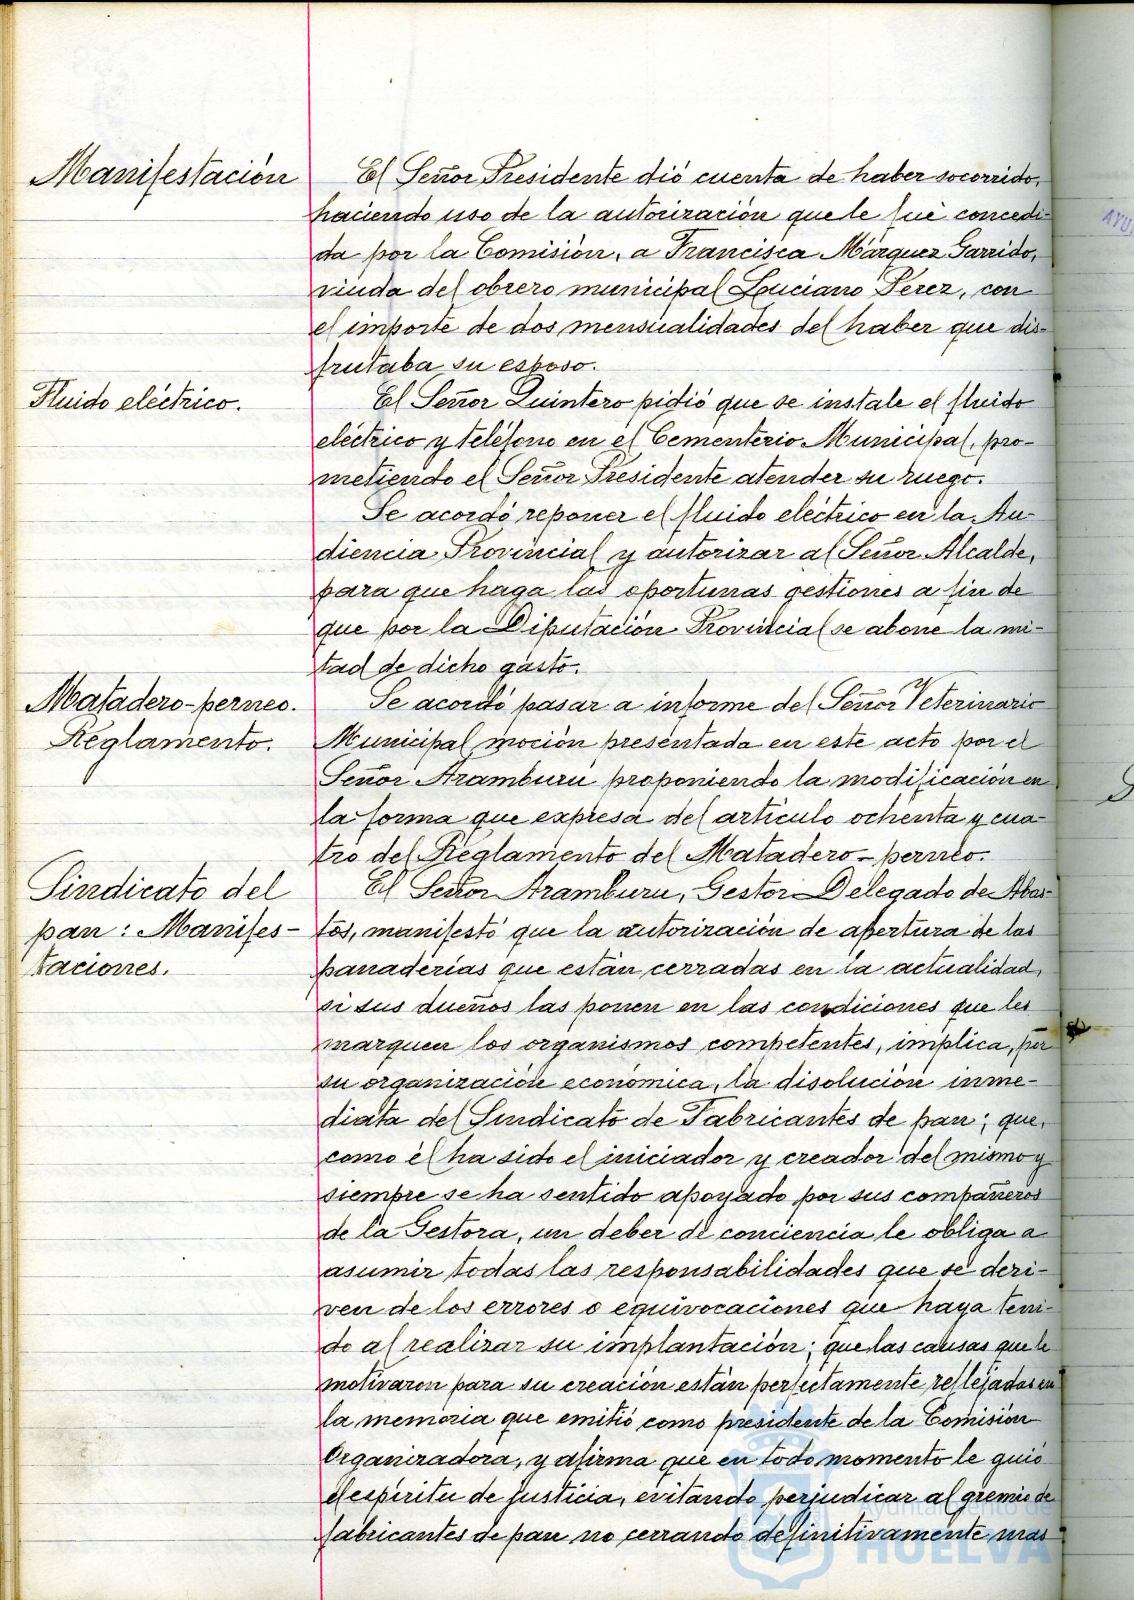 Manifestación
El Señor Presidente dió cuenta de haber socorrido,
haciendo uso de la autorización que le fué concedi-
da por la Comisión, a Francisca Márquez Garrido,
viuda del obrero municipal Luciano Pérez, con
el importe de dos mensualidades del haber que dis-
frutaba su esposo.
Fluido eléctrico.
El Señor Quintero pidió que se instale el fluido
eléctrico y teléfono en el Cementerio Municipal, pro-
metiendo el Señor Presidente atender su ruego.
Se acordó reponer el fluido eléctrico en la Au-
diencia Provincial y autorizar al Señor Alcalde,
para que haga las oportunas gestiones a fin de
que por la Diputación Provincial se abone la mi-
tad de dicho gasto.
Matadero-perneo.
Reglamento.
Se acordó pasar a informe del Señor Veterinario
Municipal moción presentada en este acto por el
Señor Aramburu proponiendo la modificación en
la forma que expresa del artículo ochenta y cua-
tro del Reglamento del Matadero-perneo.
Sindicato del
pan: Manifes-
taciones.
El Señor Aramburu, Gestor Delegado de Abas-
tos, manifestó que la autorización de apertura de las
panaderías que están cerradas en la actualidad,
si sus dueños las ponen en las condiciones que les
marquen los organismos competentes, implica, por
su organización económica, la disolución inme-
diata del Sindicato de Fabricantes de pan; que,
como él ha sido el iniciador y creador del mismo y
siempre se ha sentido apoyado por sus compañeros
de la Gestora, un deber de conciencia le obliga a
asumir todas las responsabilidades que se deri-
ven de los errores o equivocaciones que haya teni-
do al realizar su implantación; que las causas que le
motivaron para su creación están perfectamente reflejadas en
la memoria que emitió como presidente de la Comisión
Organizadora, y afirma que en todo momento le guió
el espíritu de justicia, evitando perjudicar al gremio de
fabricantes de pan no cerrando definitivamente mas
Ayuntamiento de
HUELVA